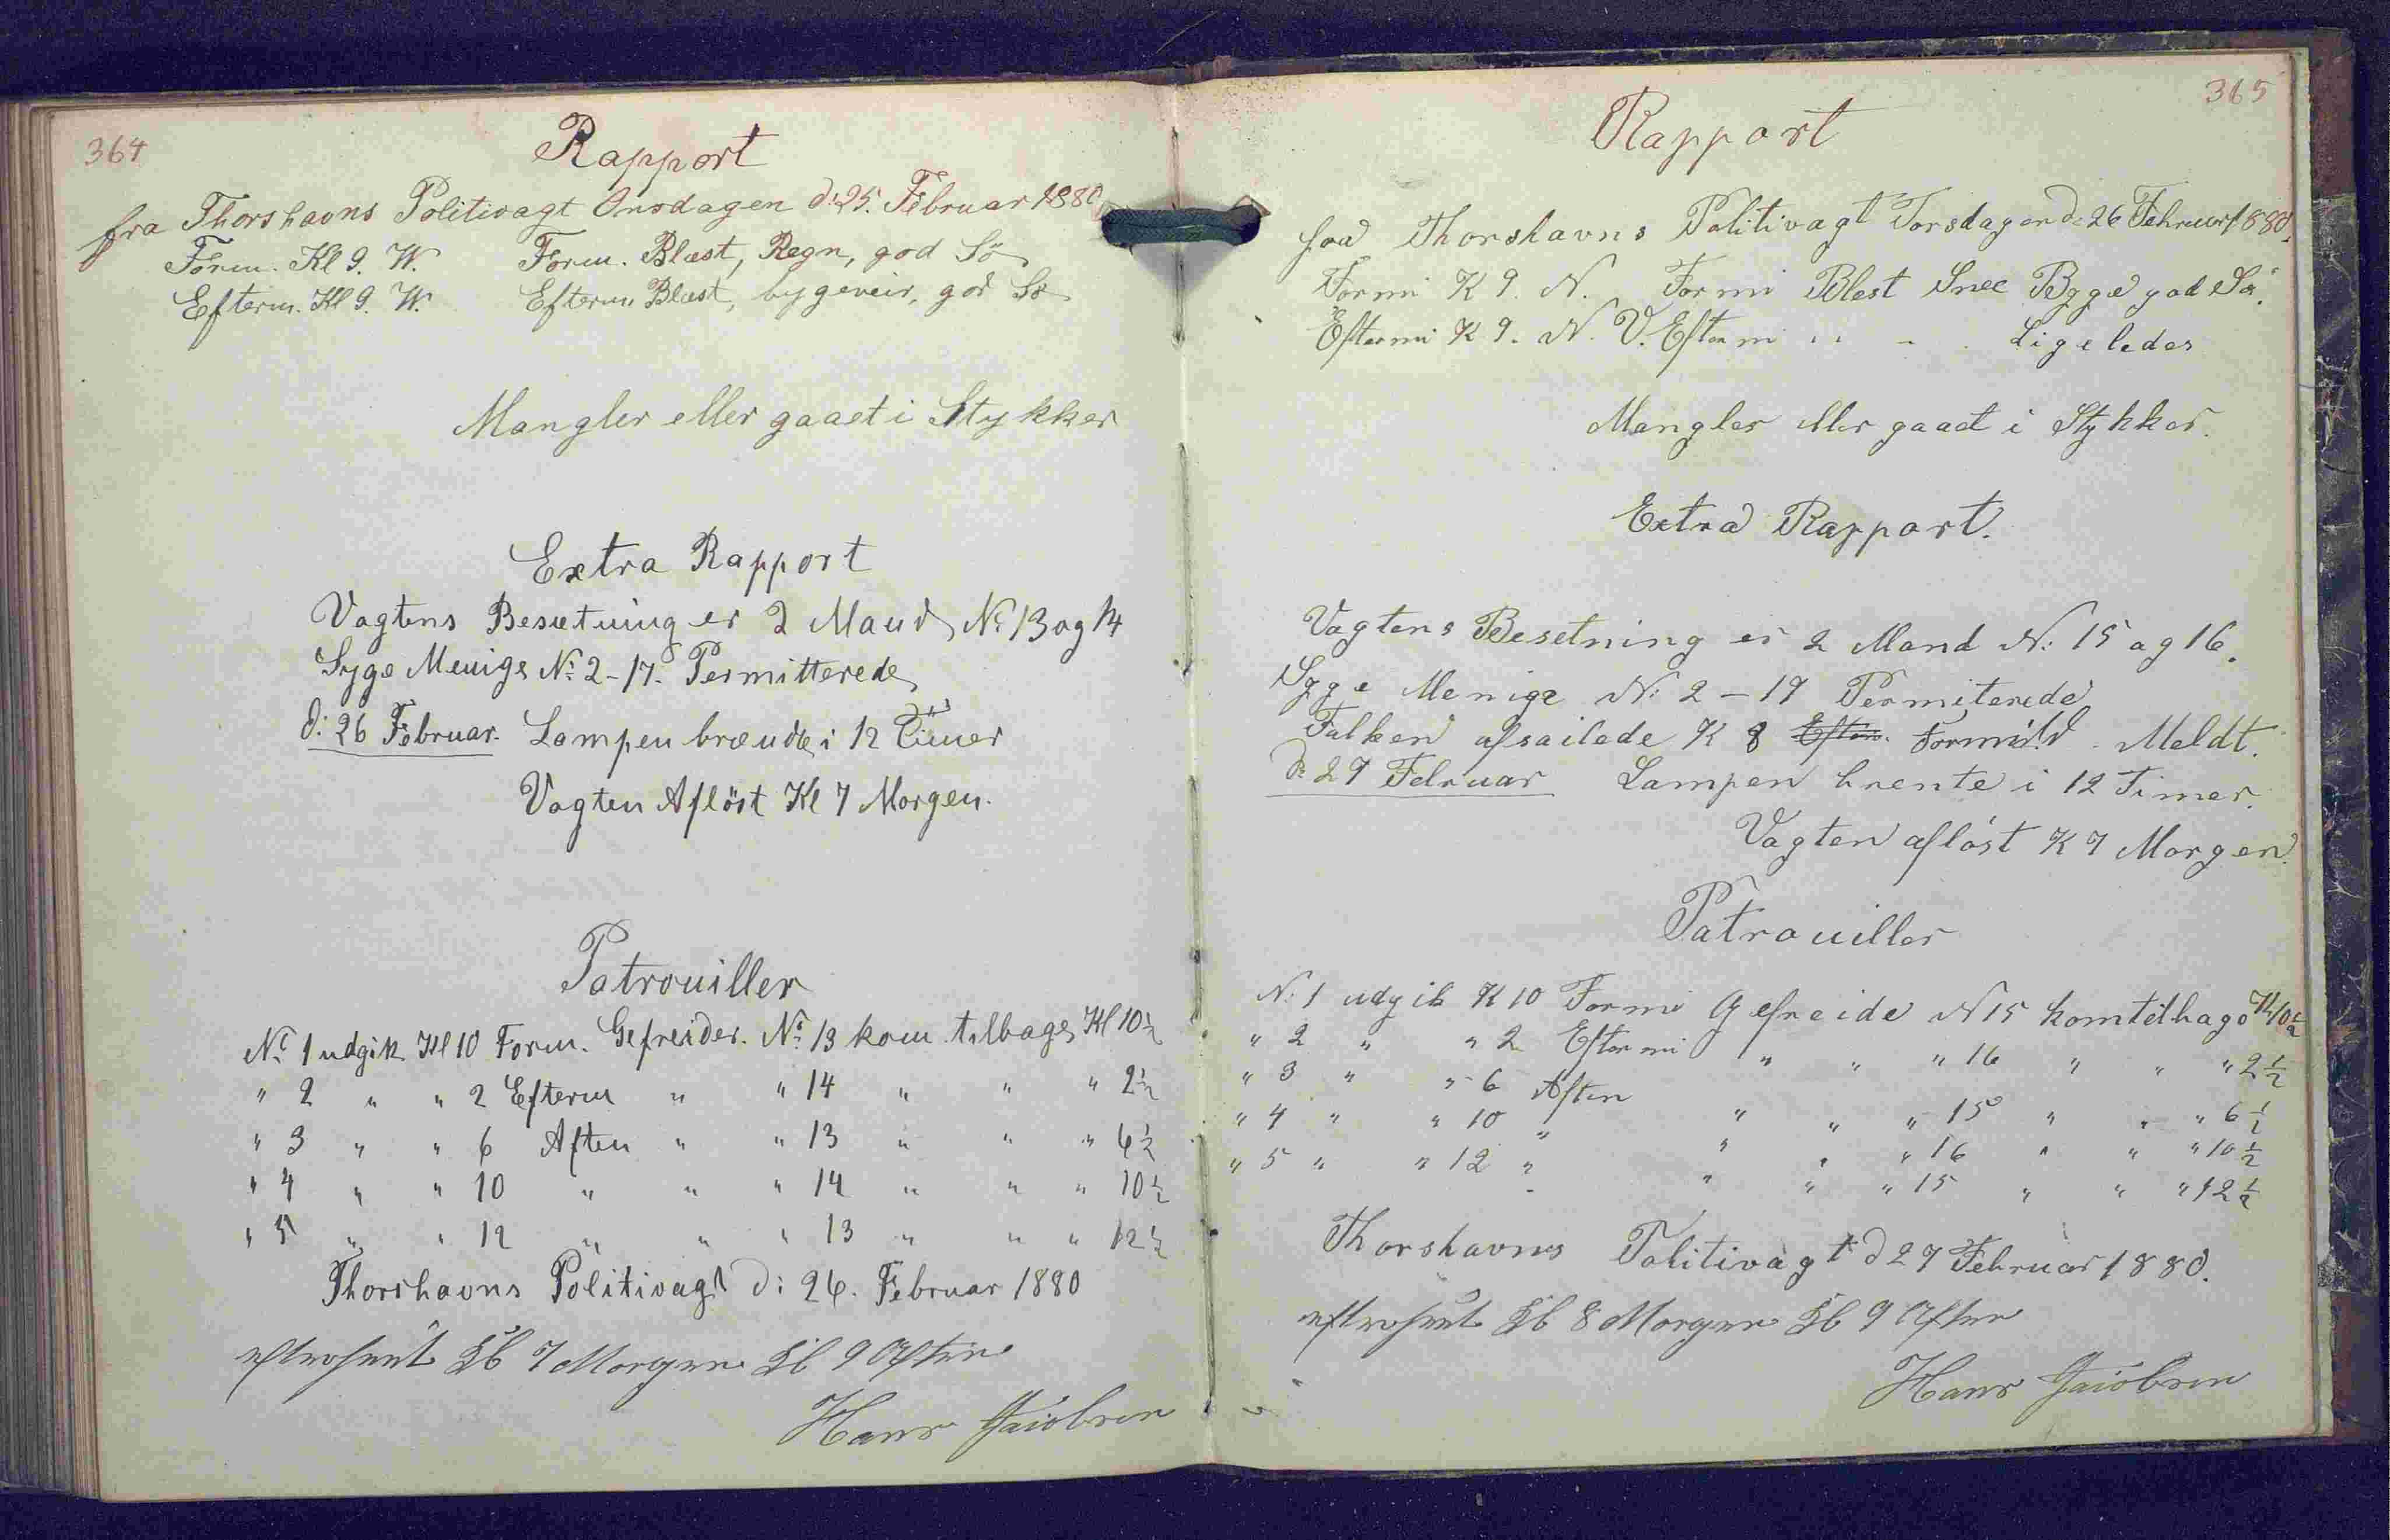 364
Rapport
fra Thorshavns Politivagt Onsdagen d: 25. Februar 1880
Form. Kl 9. W. Form. Blæst, Regn, god Sö
Efterm. Kl 9. W. Efterm Blæst, bygeveir, god Sö
Mangler eller gaaet i Stykker
Extra Rapport
Vagtens Besætning er 2 Mand, No 13 og 14
Syge Menige No 2-17. Permitterede
d: 26 Februar. Lampen brændte i 12 Timer
Vagten Aflöst Kl 7 Morgen.
Patrouiller
No 1 udgik Kl 10 Form. Gefreider. No 13 kom tilbage Kl 10½
" 2 " " 2 Efterm " " 14 " " " 2½
" 3 " " 6 Aften " " 13 " " " 6½
" 4 " " 10 " " " 14 " " " 10½
" 5 " " 12 " " " 13 " " " 12½
Thorshavns Politivagt d: 26. Februar 1880
efterseet Kl 7 Morgen Kl 9 Aften
Hans Jacobsen
365
Rapport
fra Thorshavns Politivagt Torsdagen d: 26 Februar 1880.
Formi K 9. N. Formi Blest Snee Bygge god Sö.
Eftermi K 9. N. V. Eftermi " " Ligeledes
Mangler eller gaaet i Stykker.
Extra Rapport.
Vagtens Besetning er 2 Mand N: 15 og 16.
Syge Menige N: 2-17 Permiterede
Falken afsailede K 8 Formid. Meldt.
d: 27 Februar Lampen brente i 12 Timer.
Vagten aflöst K 7 Morgen.
Patrouiller
N: 1 udgik K 10 Formi Gefreide N 15 kom tilbage K 10½
" 2 " " 2 Eftermi " " " 16 " " " 2½
" 3 " " 6 Aften " " " 15 " " " 6½
" 4 " " 10 " " " " 16 " " " 10½
" 5 " " 12 " " " " 15 " " " 12½
Thorshavns Politivagt d 27 Februar 1880.
efterseet Kl 8 Morgen Kl 9 Aften
Hans Jacobsen